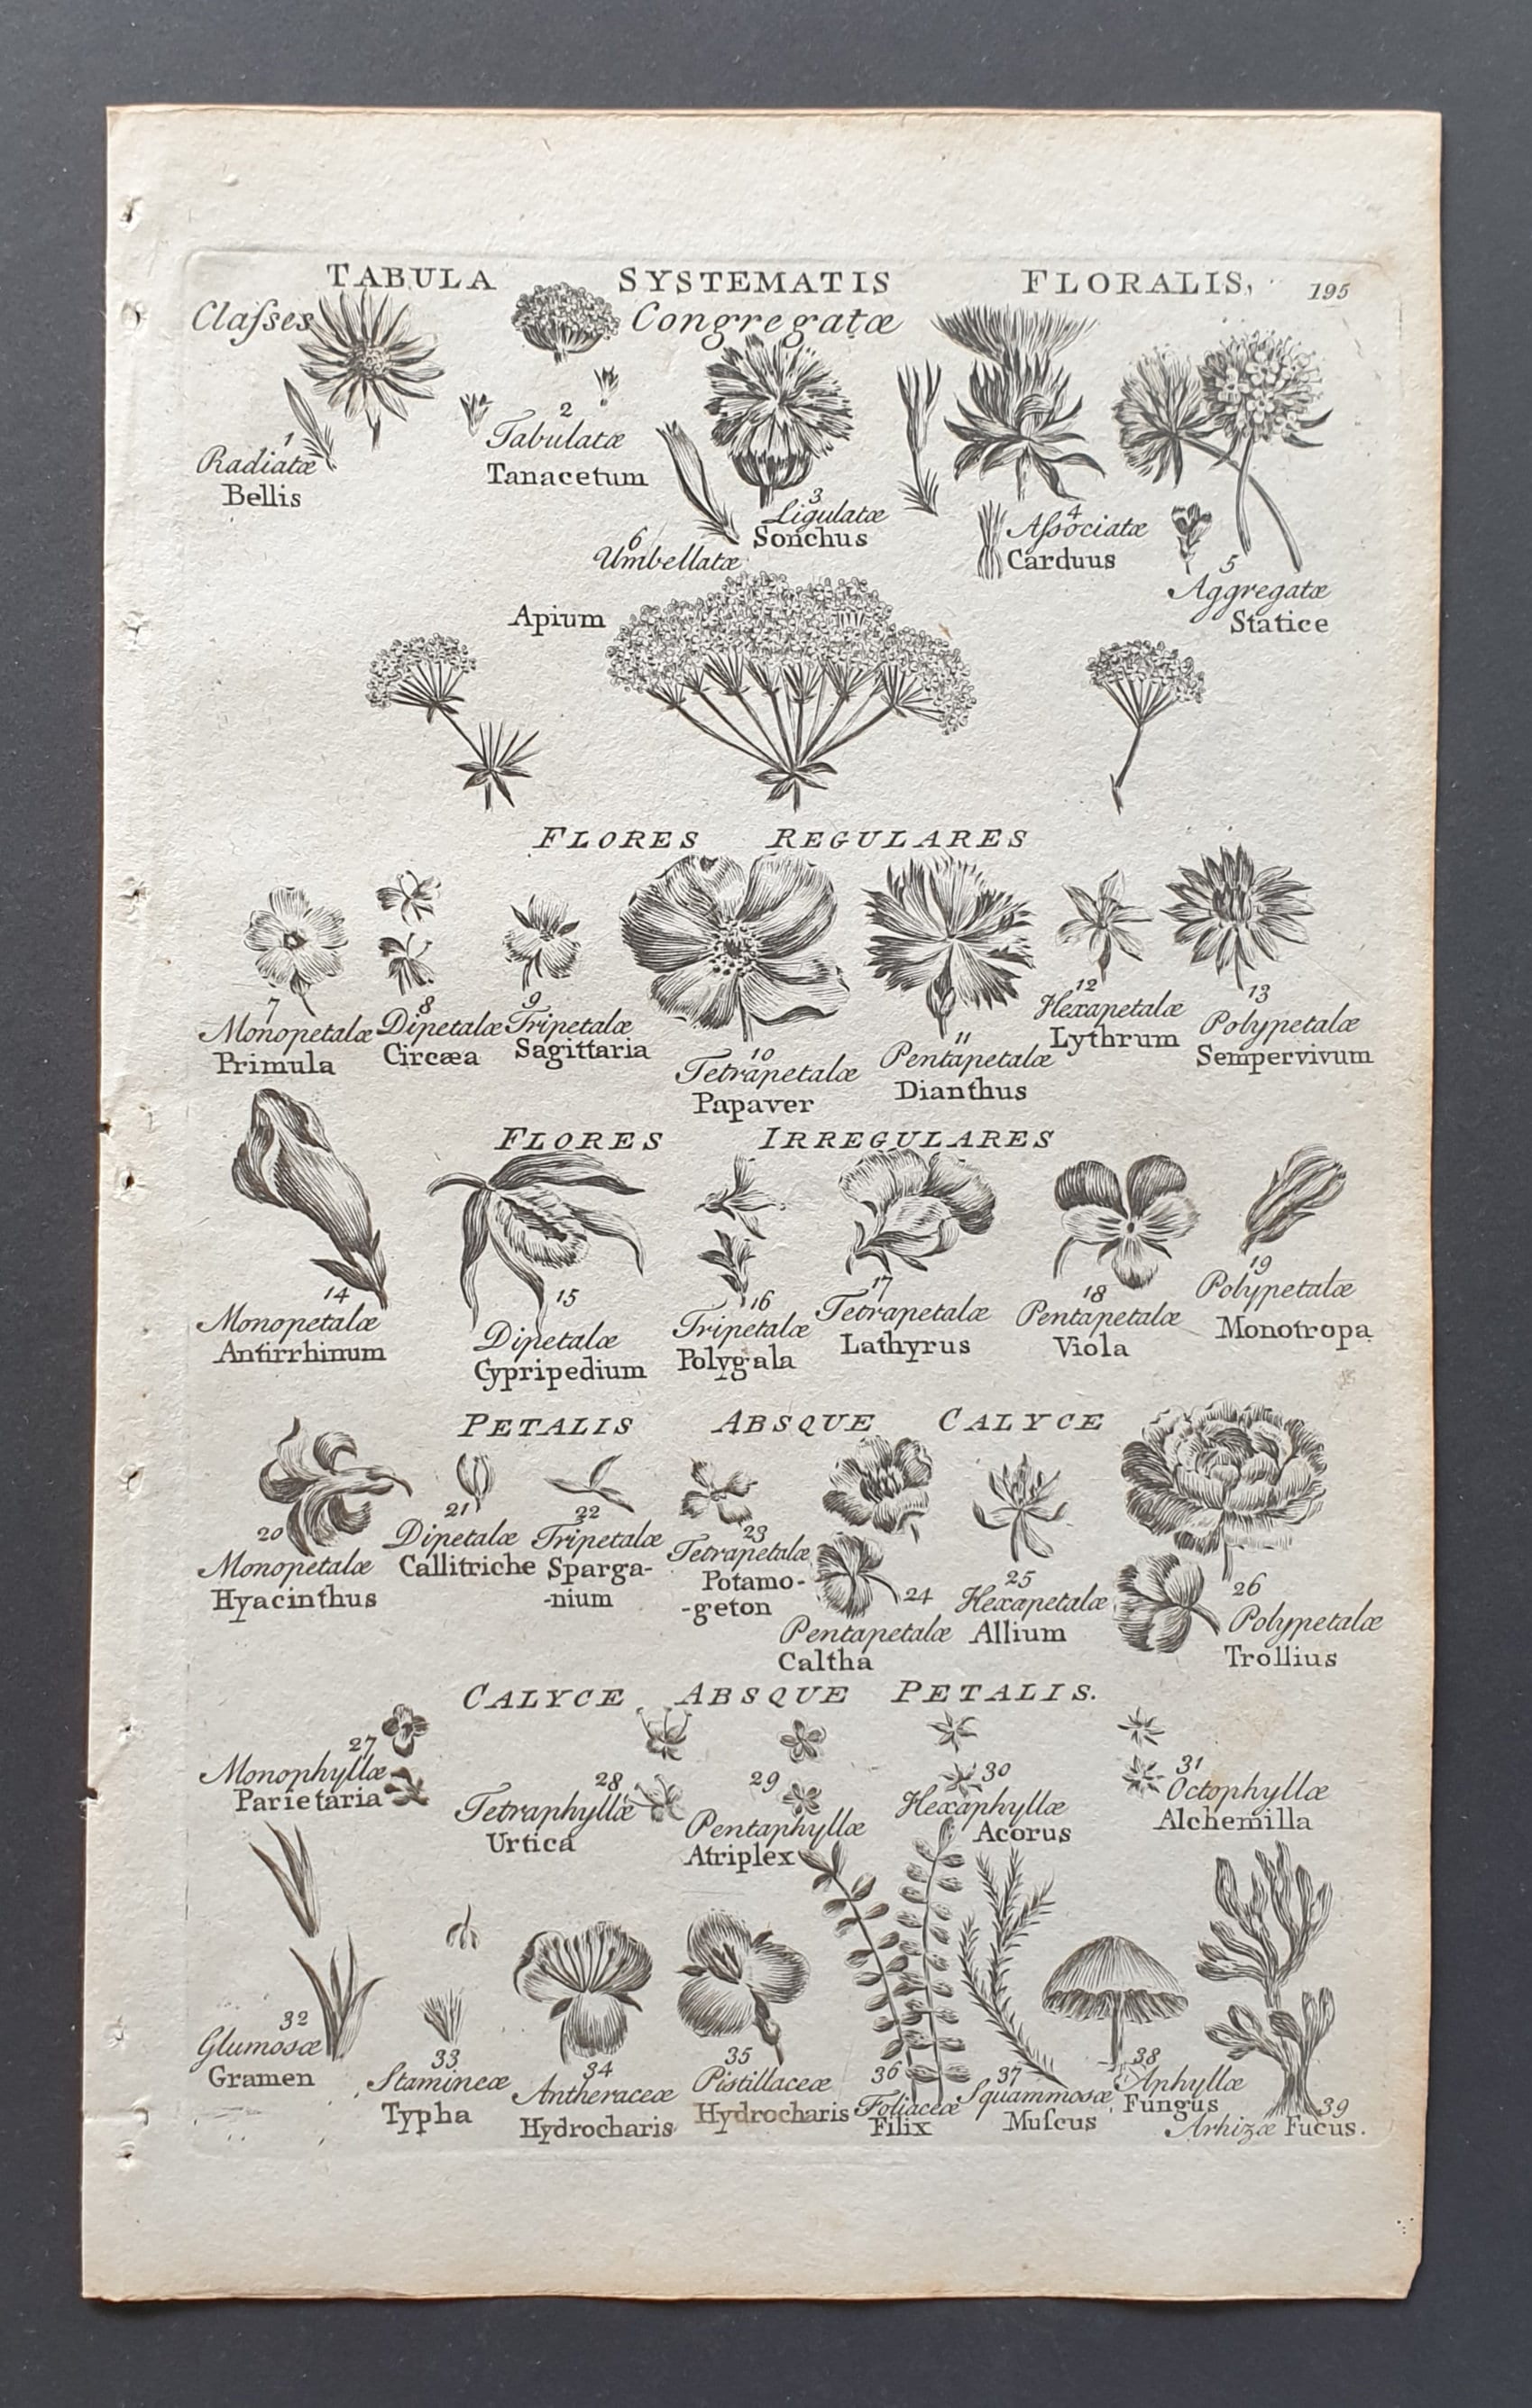 TABULA SYSTEMATIS FLORALIS, 195
Claſses Congregatæ
1
Radiatæ
Bellis
2
Tabulatæ
Tanacetum
3
Ligulatæ
Sonchus
4
Aſsociatæ
Carduus
5
Aggregatæ
Statice
6
Umbellatæ
Apium
FLORES REGULARES
7
Monopetalæ
Primula
8
Dipetalæ
Circæa
9
Tripetalæ
Sagittaria
10
Tetrapetalæ
Papaver
11
Pentapetalæ
Dianthus
12
Hexapetalæ
Lythrum
13
Polypetalæ
Sempervivum
FLORES IRREGULARES
14
Monopetalæ
Antirrhinum
15
Dipetalæ
Cypripedium
16
Tripetalæ
Polygala
17
Tetrapetalæ
Lathyrus
18
Pentapetalæ
Viola
19
Polypetalæ
Monotropa
PETALIS ABSQUE CALYCE
20
Monopetalæ
Hyacinthus
21
Dipetalæ
Callitriche
22
Tripetalæ
Sparga-
-nium
23
Tetrapetalæ
Potamo-
-geton
24
Pentapetalæ
Caltha
25
Hexapetalæ
Allium
26
Polypetalæ
Trollius
CALYCE ABSQUE PETALIS.
27
Monophyllæ
Parietaria
28
Tetraphyllæ
Urtica
29
Pentaphyllæ
Atriplex
30
Hexaphyllæ
Acorus
31
Octophyllæ
Alchemilla
32
Glumosæ
Gramen
33
Stamineæ
Typha
34
Antheraceæ
Hydrocharis
35
Pistillaceæ
Hydrocharis
36
Foliaceæ
Filix
37
Squammosæ
Muſcus
38
Aphyllæ
Fungus
39
Arhizæ Fucus.